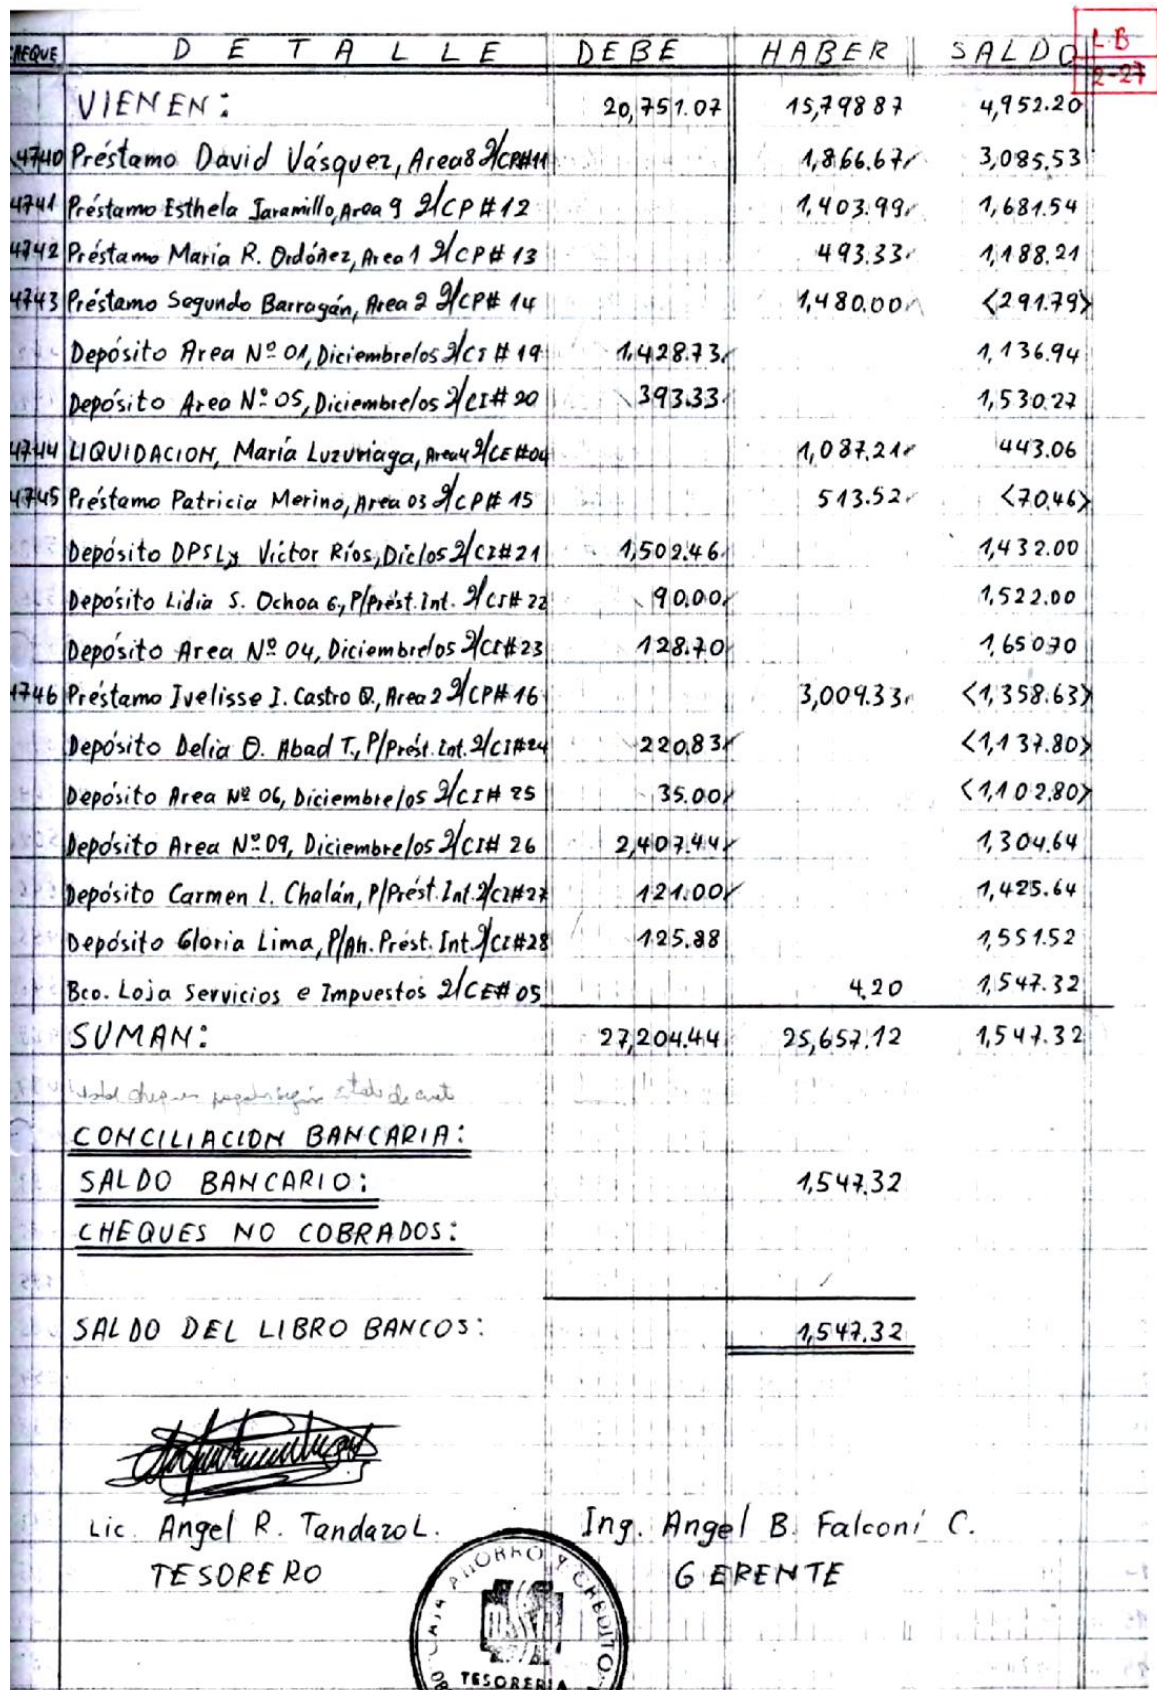 LB
2-27
CHEQUE DETALLE DEBE HABER SALDO
VIENEN: 20,751.07 15,798 87 4,952.20
4740 Préstamo David Vásquez, Area 8 S/CP#11 1,866.67 3,085.53
4741 Préstamo Esthela Jaramillo, Area 9 S/CP #12 1,403.99 1,681.54
4742 Préstamo María R. Ordóñez, Area 1 S/CP# 13 493.33 1,188.21
4743 Préstamo Segundo Barragán, Area 2 S/CP# 14 1,480.00 <291.79>
Depósito Area Nº 01, Diciembre/05 S/CI # 19 1,428.73 1,136.94
Depósito Area Nº 05, Diciembre/05 S/CI# 20 393.33 1,530.27
4744 LIQUIDACION, María Luzuriaga, Area 4 S/CE #04 1,087.21 443.06
4745 Préstamo Patricia Merino, Area 03 S/CP# 15 513.52 <70.46>
Depósito DPSL, Víctor Ríos, Dic/05 S/CI#21 1,502.46 1,432.00
Depósito Lidia S. Ochoa G, P/Prést. Int. S/CI# 22 90.00 1,522.00
Depósito Area Nº 04, Diciembre/05 S/CI#23 128.70 1,650.70
4746 Préstamo Ivelisse I. Castro Q., Area 2 S/CP# 16 3,009.33 <1,358.63>
Depósito Delia O. Abad T., P/Prést. Int. S/CI#24 220.83 <1,137.80>
Depósito Area Nº 06, Diciembre/05 S/CI# 25 35.00 <1,102.80>
Depósito Area Nº 09, Diciembre/05 S/CI# 26 2,407.44 1,304.64
Depósito Carmen L. Chalán, P/Prést. Int. S/CI#27 121.00 1,425.64
Depósito Gloria Lima, P/Ah. Prést. Int. S/CI#28 125.88 1,551.52
Bco. Loja Servicios e Impuestos S/CE# 05 4.20 1,547.32
SUMAN: 27,204.44 25,657.12 1,547.32
cheques pagados según estado de
CONCILIACION BANCARIA:
SALDO BANCARIO: 1,547.32
CHEQUES NO COBRADOS:
SALDO DEL LIBRO BANCOS: 1,547.32
Lic. Angel R. Tandazo L. Ing. Angel B. Falconí C.
TESORERO GERENTE
CAJA AHORRO Y CREDITO
TESORERIA